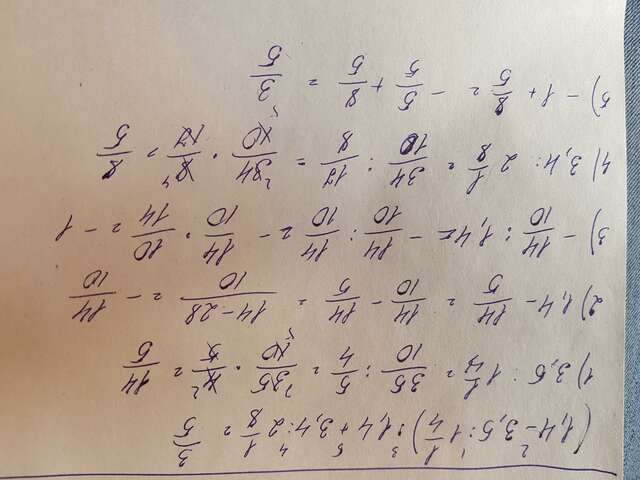 (1,4 - 3,5 : 1 1/4) : 1,4 + 3,4 : 2 1/8 = 3/5
1) 3,5 : 1 1/4 = 35/10 : 5/4 = 35/10 · 4/5 = 14/5
2) 1,4 - 14/5 = 14/10 - 14/5 = 14-28/10 = - 14/10
3) - 14/10 : 1,4 = - 14/10 : 14/10 = - 14/10 · 10/14 = - 1
4) 3,4 : 2 1/8 = 34/10 : 17/8 = 34/10 · 8/17 = 8/5
5) - 1 + 8/5 = - 5/5 + 8/5 = 3/5